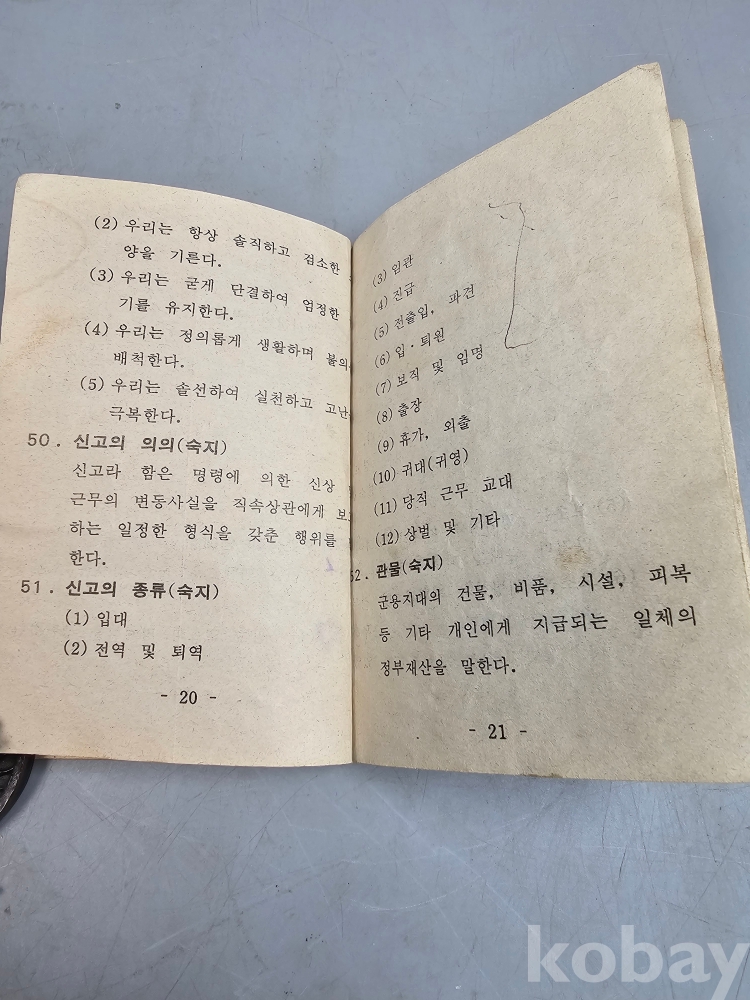 (2) 우리는 항상 솔직하고 검소한
양을 기른다.
(3) 우리는 굳게 단결하여 엄정한
기를 유지한다.
(4) 우리는 정의롭게 생활하며 불의
배척한다.
(5) 우리는 솔선하여 실천하고 고난
극복한다.
50. 신고의 의의(숙지)
신고라 함은 명령에 의한 신상
근무의 변동사실을 직속상관에게 보
하는 일정한 형식을 갖춘 행위를
한다.
51. 신고의 종류(숙지)
(1) 입대
(2) 전역 및 퇴역
- 20 -
(3) 임관
(4) 진급
(5) 전출입, 파견
(6) 입·퇴원
(7) 보직 및 임명
(8) 출장
(9) 휴가, 외출
(10) 귀대(귀영)
(11) 당직 근무 교대
(12) 상벌 및 기타
52. 관물(숙지)
군용지대의 건물, 비품, 시설, 피복
등 기타 개인에게 지급되는 일체의
정부재산을 말한다.
- 21 -
kobay